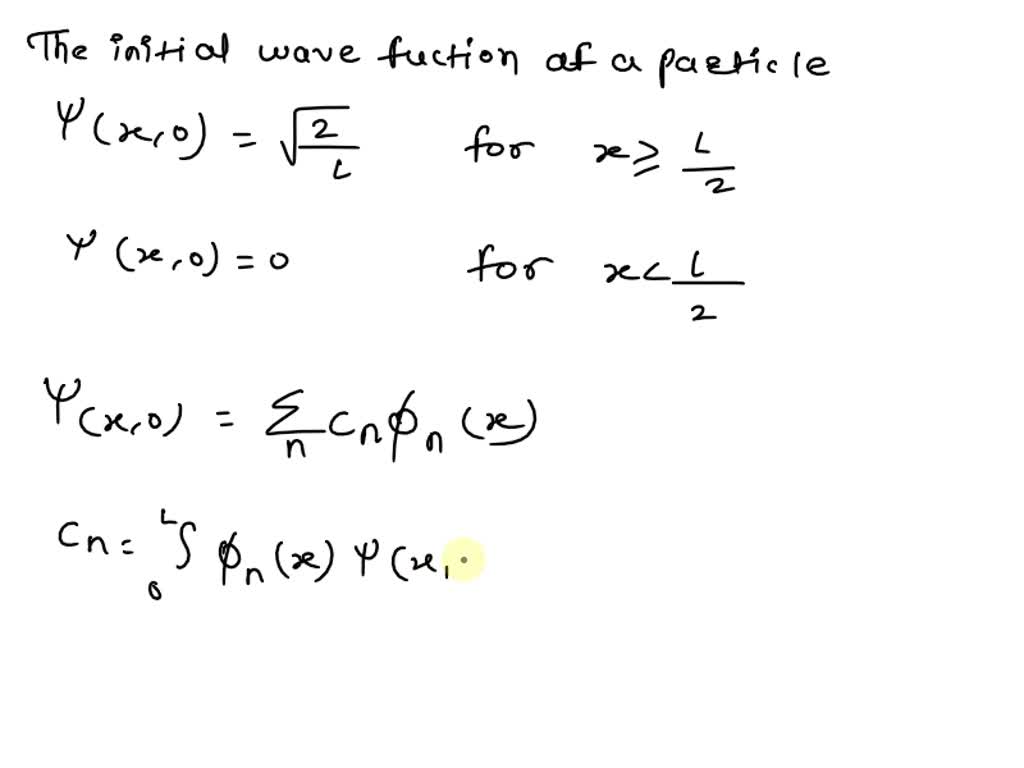 The initial wave fuction of a particle
Ψ(x,0) = √2/L for x ≥ L/2
Ψ(x,0) = 0 for x < L/2
Ψ(x,0) = Σn Cn ϕn (x)
Cn = 0∫L ϕn (x) Ψ(x,